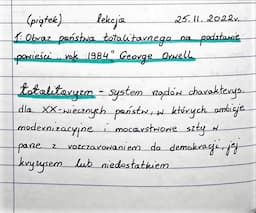 (piątek) lekcja 25.11.2022r.
1. Obraz państwa totalitarnego na podstawie
powieści „rok 1984" George Orwell
totalitaryzm - system rządów charakterys.
dla XX-wiecznych państw, w których ambicje
modernizacyjne i mocarstwowe szły w
parze z rozczarowaniem do demokracji, jej
kryzysem lub niedostatkiem